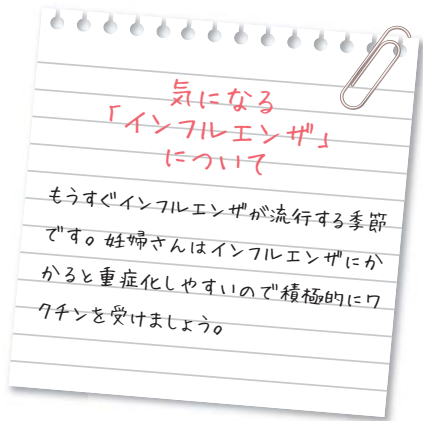 気になる
「インフルエンザ」
について
もうすぐインフルエンザが流行する季節
です。妊婦さんはインフルエンザにか
かると重症化しやすいので積極的にワ
クチンを受けましょう。